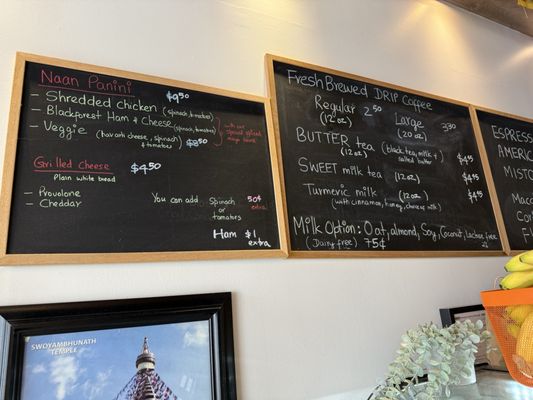 Naan Panini
- Shredded Chicken (spinach, tomatoes) $9.50
- Blackforest Ham & Cheese (spinach, tomatoes)
- Veggie (havarti cheese, spinach & tomatoes)
with our special spiced mayo sauce
Grilled Cheese $4.50
Plain white bread
- Provolone
- Cheddar
You can add Spinach or tomatoes 50¢ extra
Ham $1 extra
Fresh Brewed DRIP Coffee
Regular 2.50 Large 3.30
(12oz) (20oz)
BUTTER tea (black tea, milk + salted butter)
(12oz) $4.45
SWEET milk tea (12oz) $4.45
Turmeric milk (12oz) $4.45
(with cinnamon, honey, choice of milk)
Milk Option: Oat, almond, Soy, Coconut, Lactose free
(Dairy free) 75¢
ESPRESS
AMERIC
MISTO
Mac
Co
F
SWOYAMBHUNATH
TEMPLE